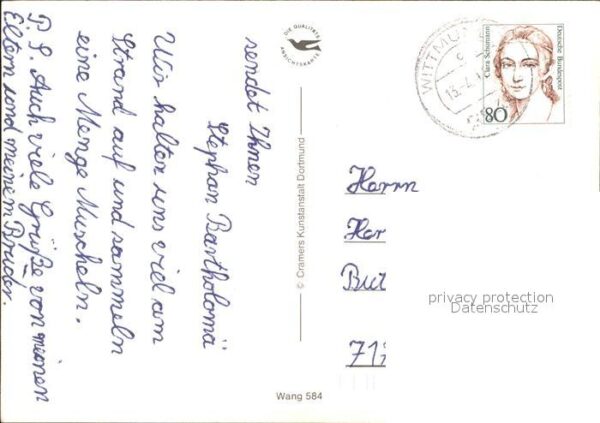 sendet Ihnen
Stephan Bartholomä
Wir halten uns viel am
Strand auf und sammeln
eine Menge Muscheln.
P. S. Auch viele Grüße von meinen
Eltern und meinem Bruder.
DIE QUALITÄTS
ANSICHTSKARTE
© Cramers Kunstanstalt Dortmund
Wang 584
WITTMU
Clara Schumann
Deutsche Bundespost
80
Herrn
Her
But
71
privacy protection
Datenschutz